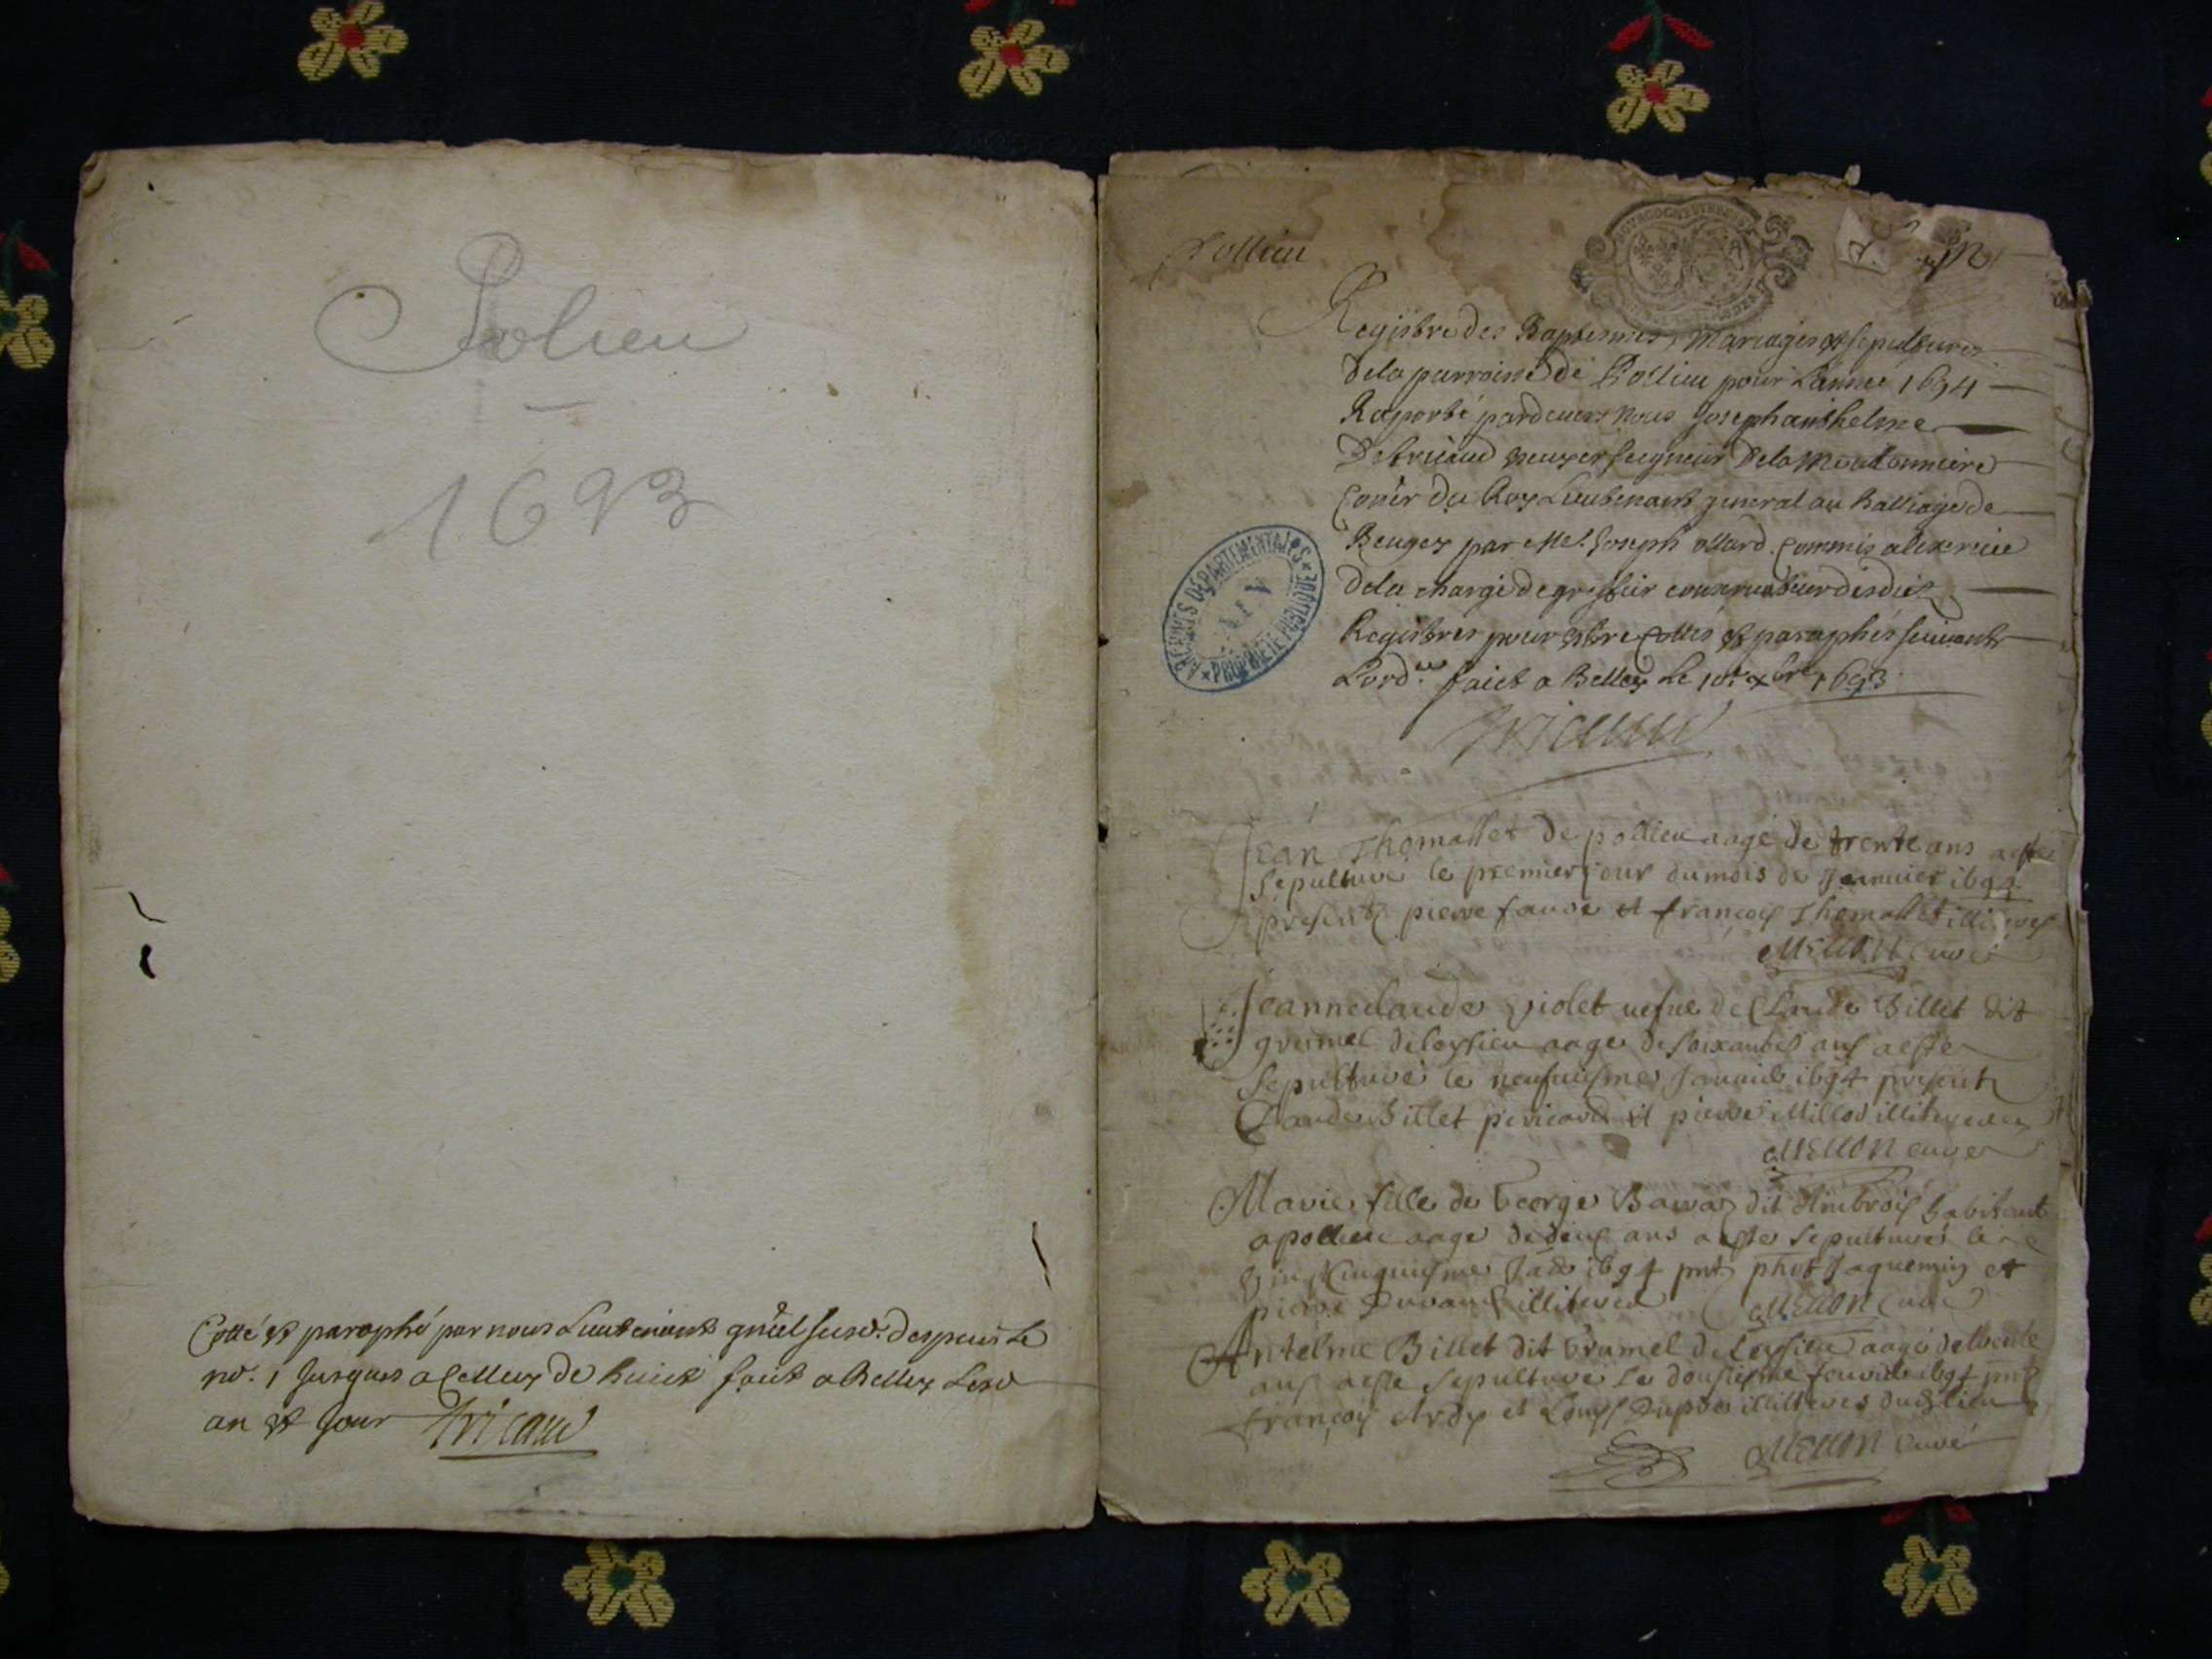 Polieu
1693
Cotté et paraphé par nous Lieutenant gnâl susd. despuis Le
no. 1 Jusques a Celluy de huict faict a Belley Lesd
an et Jour Tricaud
Pollieu
Registre des Baptesmes, Mariages et sepultures
de la parroisse de Pollieu pour L'année 1694
Raporté pardevers Nous Joseph anthelme
De tricaud seigneur De la
du Roy Lieutenant general au Balliage de
Beugey par Me. Joseph ollard Commis a lexercice
de la charge de greffier conservateur desdits
Registres pour estre Cottés et paraphés suivant
L'ord.ce faict a Belley Le 10e xbre 1693
Tricaud
ARCHIVES DÉPARTEMENTALES
AIN
PROPRIÉTÉ PUBLIQUE
Jean Thomasset de pollieu aagé de trente ans a esté
sepulturé le premier jour du mois de Januier 1694
presents pierre et françois Thomasset
MELLON Curé
Jeanne claude violet vefue de Claude Billet dit
de aage de soixante ans a esté
sepulturé le neufuiesme Januier 1694 presents
Claude Billet et pierre
MELLON curé
Marie fille de George dit Ambrois habitant
a pollieu aage de deux ans a esté sepulturée le
1694 pnts Jaquemin et
pierre illiterés MELLON Curé
Antelme Billet dit de aagé de
ans a esté sepulturé le dousiesme 1694 pnts
françois et Louys illiterés dud lieu
MELLON Curé